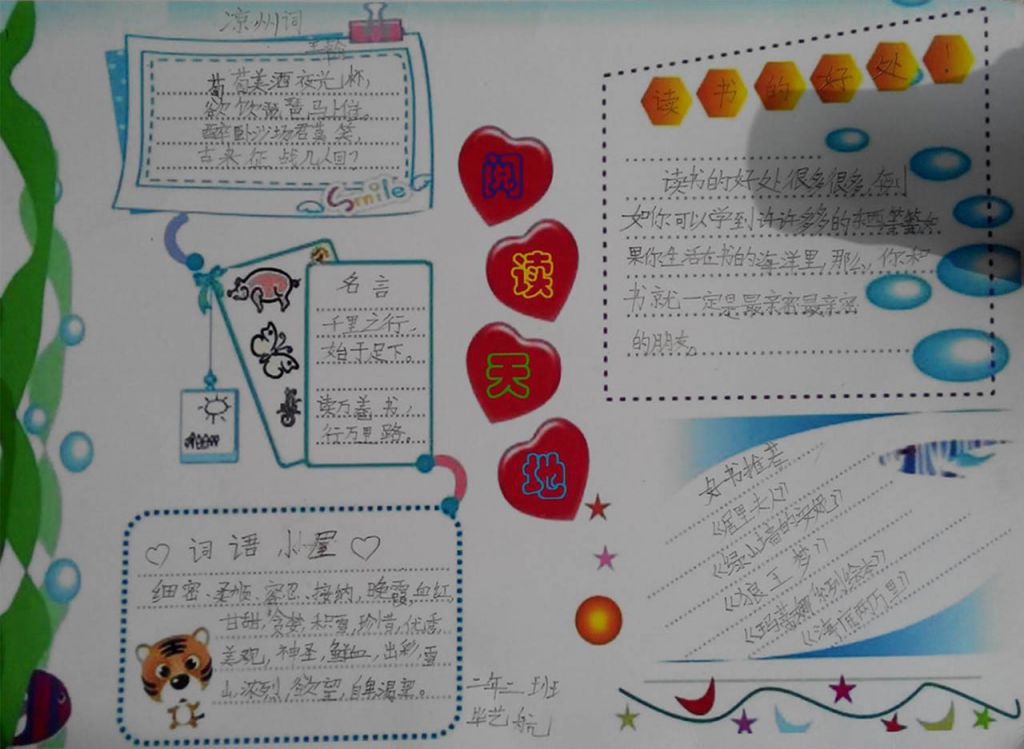 凉州词
王翰
葡萄美酒夜光杯,
欲饮琵琶马上催。
醉卧沙场君莫笑,
古来征战几人回?
Smile
名言
千里之行,
始于足下。
读万卷书,
行万里路。
词语小屋
细密、柔顺、容忍、接纳、晚霞,血红,
甘甜,积雪,珍惜,优秀,
美观,神圣,鲜血,出彩,雪
山,浓烈,欲望,自卑渴望。
阅
读
天
地
二年二班
毕艺航
读书的好处!
读书的好处很多很多,
如你可以学到许许多多的东西等等如
果你生活在书的海洋里,那么,你和
书就一定是最亲密最亲密
的朋友。
好书推荐
《居里夫人》
《绿山墙的安妮》
《狼王梦》
《玛蒂娜系列绘本》
《海底两万里》